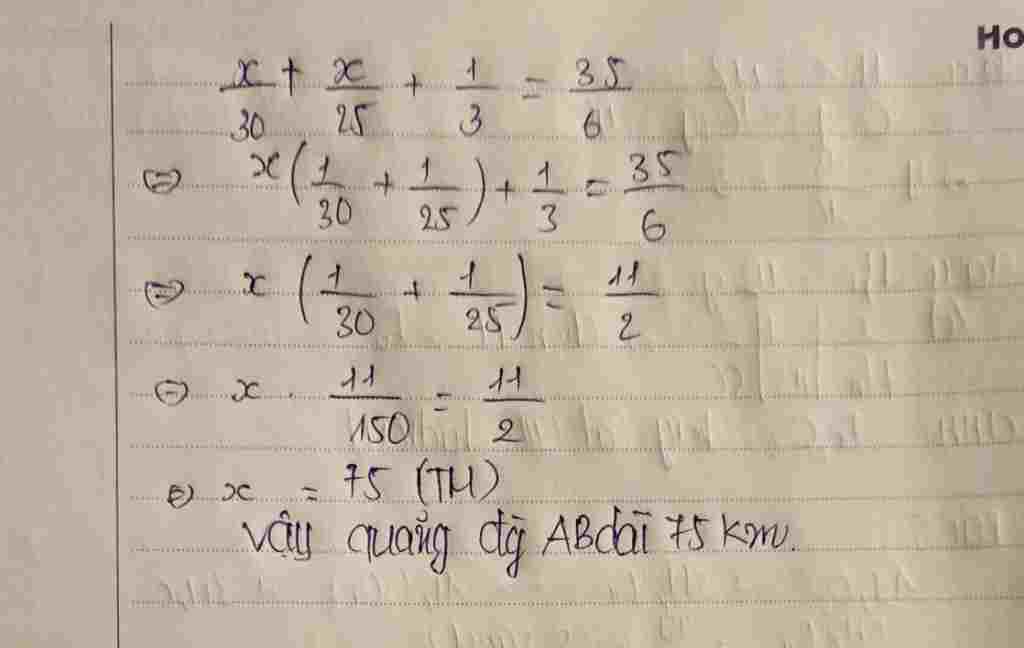 Ho
x/30 + x/25 + 1/3 = 35/6
⇔ x(1/30 + 1/25) + 1/3 = 35/6
⇔ x(1/30 + 1/25) = 11/2
⇔ x . 11/150 = 11/2
⇔ x = 75 (TM)
Vậy quãng đg AB dài 75 km.